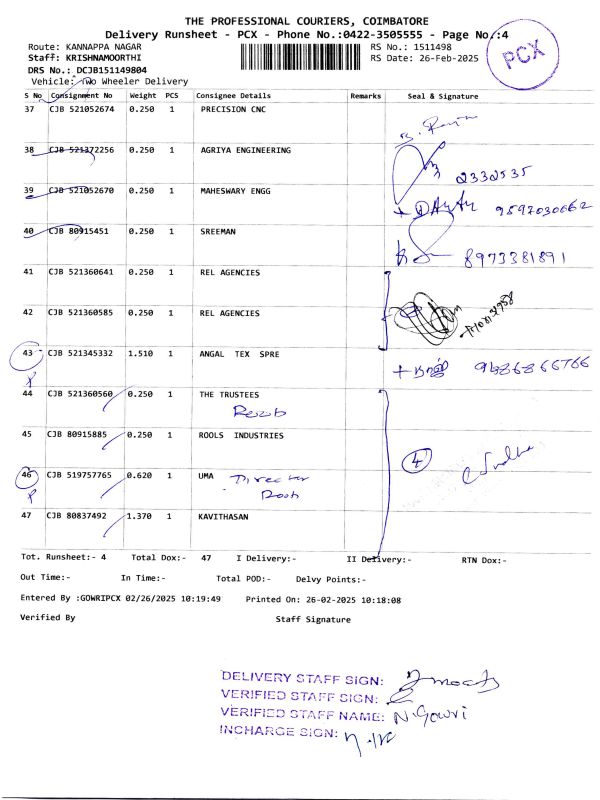 THE PROFESSIONAL COURIERS, COIMBATORE
Delivery Runsheet - PCX - Phone No.:0422-3505555 - Page No.:4
Route: KANNAPPA NAGAR
RS No.: 1511498
PCX
Staff: KRISHNAMOORTHI
RS Date: 26-Feb-2025
DRS No.: DCJB151149804
Vehicle: Two Wheeler Delivery
S No Consignment No Weight PCS Consignee Details Remarks Seal & Signature
37 CJB 521052674 0.250 1 PRECISION CNC
38 CJB 521372256 0.250 1 AGRIYA ENGINEERING
2332535
39 CJB 521052670 0.250 1 MAHESWARY ENGG
9597030662
40 CJB 80915451 0.250 1 SREEMAN
8973381891
41 CJB 521360641 0.250 1 REL AGENCIES
42 CJB 521360585 0.250 1 REL AGENCIES
43 CJB 521345332 1.510 1 ANGAL TEX SPRE
44 CJB 521360560 0.250 1 THE TRUSTEES
45 CJB 80915885 0.250 1 ROOLS INDUSTRIES
4
46 CJB 519757765 0.620 1 UMA Director
47 CJB 80837492 1.370 1 KAVITHASAN
Tot. Runsheet:- 4 Total Dox:- 47 I Delivery:- II Delivery:- RTN Dox:-
Out Time:- In Time:- Total POD:- Delvy Points:-
Entered By :GOWRIPCX 02/26/2025 10:19:49 Printed On: 26-02-2025 10:18:08
Verified By Staff Signature
DELIVERY STAFF SIGN:
VERIFIED STAFF SIGN:
VERIFIED STAFF NAME: N. Gowri
INCHARGE SIGN: